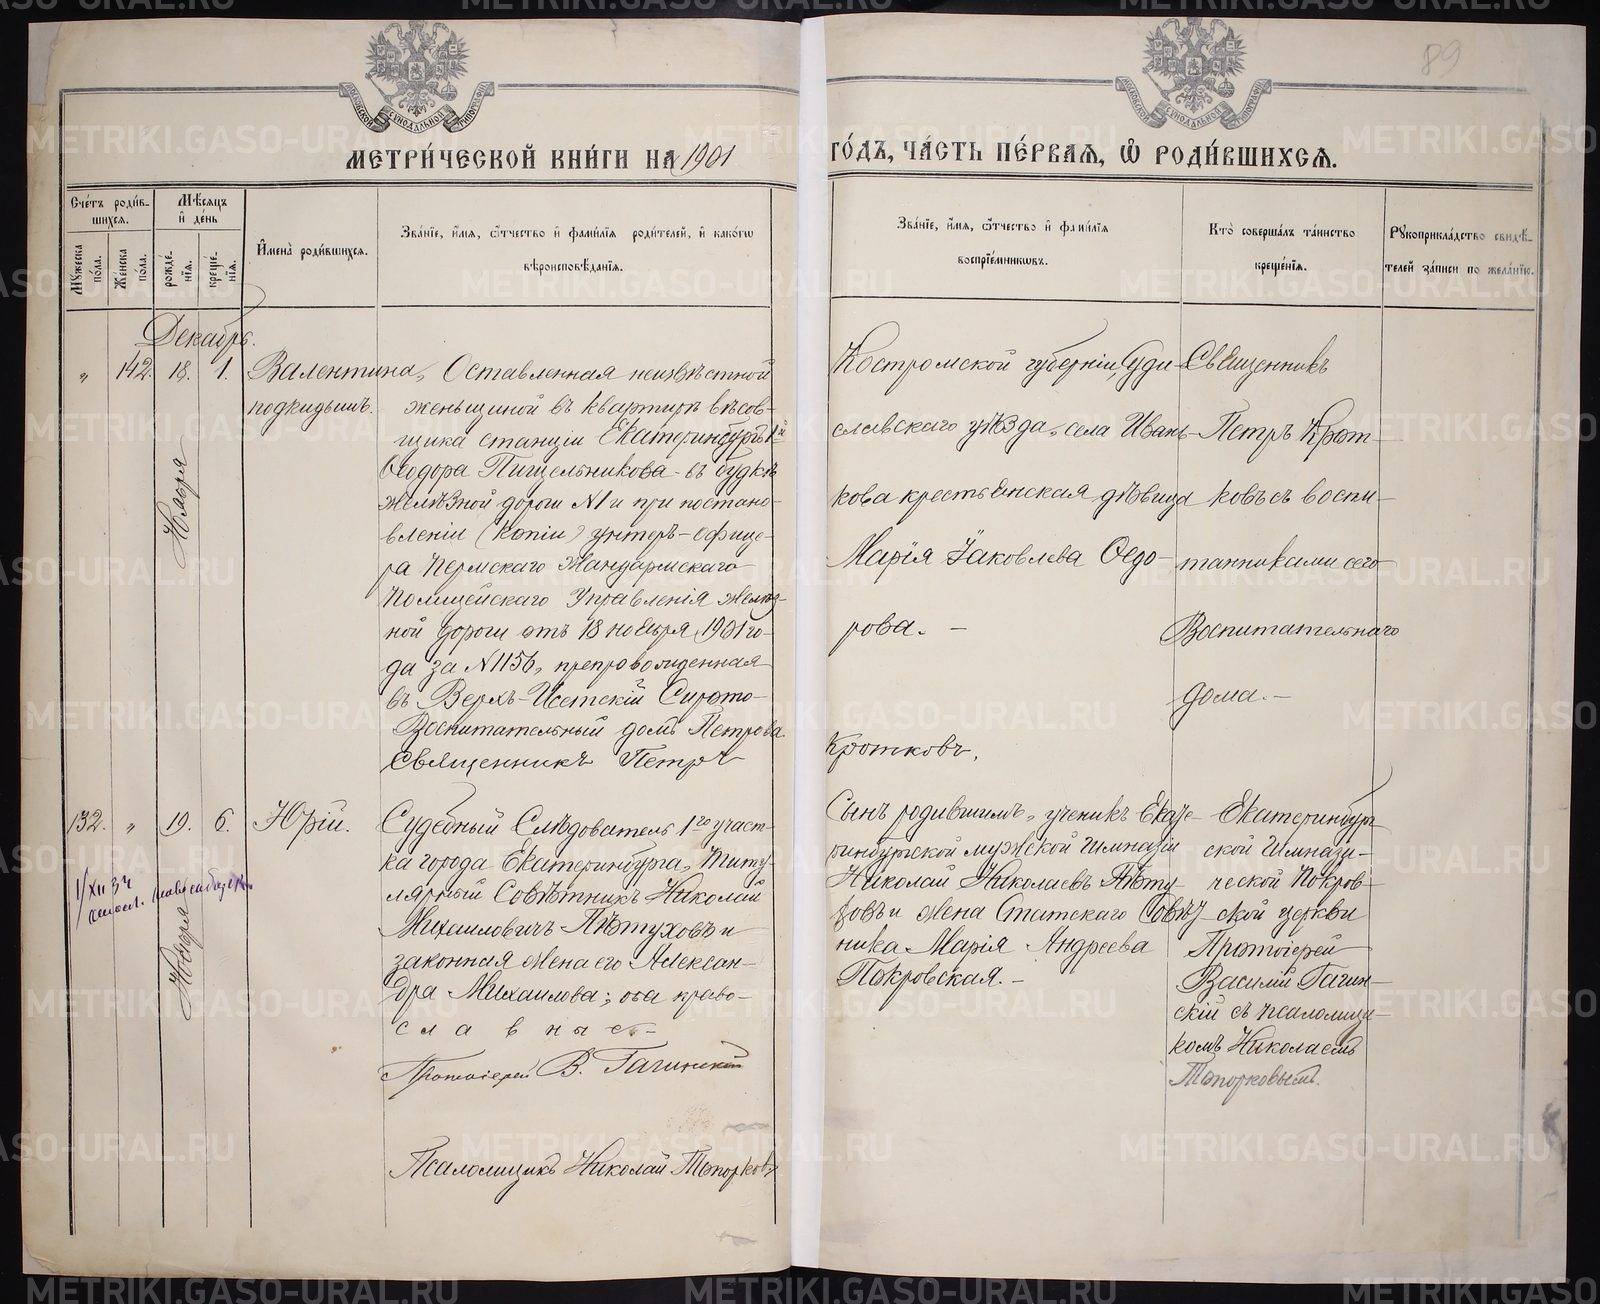 89
МОСКОВСКОЙ СѴНОДАЛЬНОЙ ТИПОГРАФІИ
МОСКОВСКОЙ СѴНОДАЛЬНОЙ ТИПОГРАФІИ
МЕТРИ́ЧЕСКОЙ КНИ́ГИ НА 1901 ГО́ДЪ, ЧА́СТЬ ПЕ́РВАѦ, Ѡ҆ РОДИ́ВШИХСѦ.
Сче́тъ роди́в-
шихсѧ.
Мѣ́сѧцъ
и҆ де́нь
Му́жеска
по́ла.
Же́нска
по́ла.
рожде́-
нїѧ.
креще́-
нїѧ.
И҆мена̀ роди́вшихсѧ.
Зва́нїе, и҆́мѧ, ѻ҆́тчество и҆ фами́лїѧ роди́телей, и҆ како́гѡ
вѣроисповѣ́данїѧ.
Зва́нїе, и҆́мѧ, ѻ҆́тчество и҆ фами́лїѧ
воспрїе́мникѡвъ.
Кто̀ соверша́лъ та́инство
креще́нїѧ.
Рꙋкоприкла́дство свидѣ́-
телей за́писи по жела́нїю.
Декабрь.
„ 142. 18. 1.
Ноября
Валентина,
подкидышъ.
Оставленная неизвѣстной
женьщиной въ квартирѣ вѣсов-
щика станціи Екатеринбургъ 1й
Ѳеодора Пищельникова въ будкѣ
желѣзной дороги №1 и при постано-
вленіи (копіи) унтеръ-офице-
ра Пермскаго Жандармскаго
Полицейскаго Управленія желѣз-
ной дороги отъ 18 ноября 1901 го-
да за №1156, препровожденная
въ Верхъ-Исетскій Сирото-
Воспитательный домъ Петрова
Священникъ Петръ Кротковъ.
Костромской губерніи, Суди-
славскаго уѣзда, села Ивань-
кова крестьянская дѣвица
Марія Іаковлева Ѳедо-
рова. —
Священникъ
Петръ Крот-
ковъ съ воспи-
танниками сего
Воспитательнаго
дома. —
132. „ 19. 6.
Ноября
1/XII 34
Юрій.
Судебный Слѣдователь 1го участ-
ка города Екатеринбурга, Титу-
лярный Совѣтникъ Николай
Михаиловичъ Пѣтуховъ и
законная жена его Алексан-
дра Михаилова; оба право-
славные. —
Протоіерей В. Гагинскій
Псаломщикъ Николай Топорковъ
Сынъ родившимъ, ученикъ Екате-
ринбургской мужской гимназіи
Николай Николаевъ Пѣту-
ховъ и жена Статскаго Совѣт-
ника Марія Андреева
Покровская. —
Екатеринбург-
ской Гимнази-
ческой Покров-
ской церкви
Протоіерей
Василій Гагин-
скій съ псаломщи-
комъ Николаемъ
Топорковымъ.
METRIKI.GASO-URAL.RU